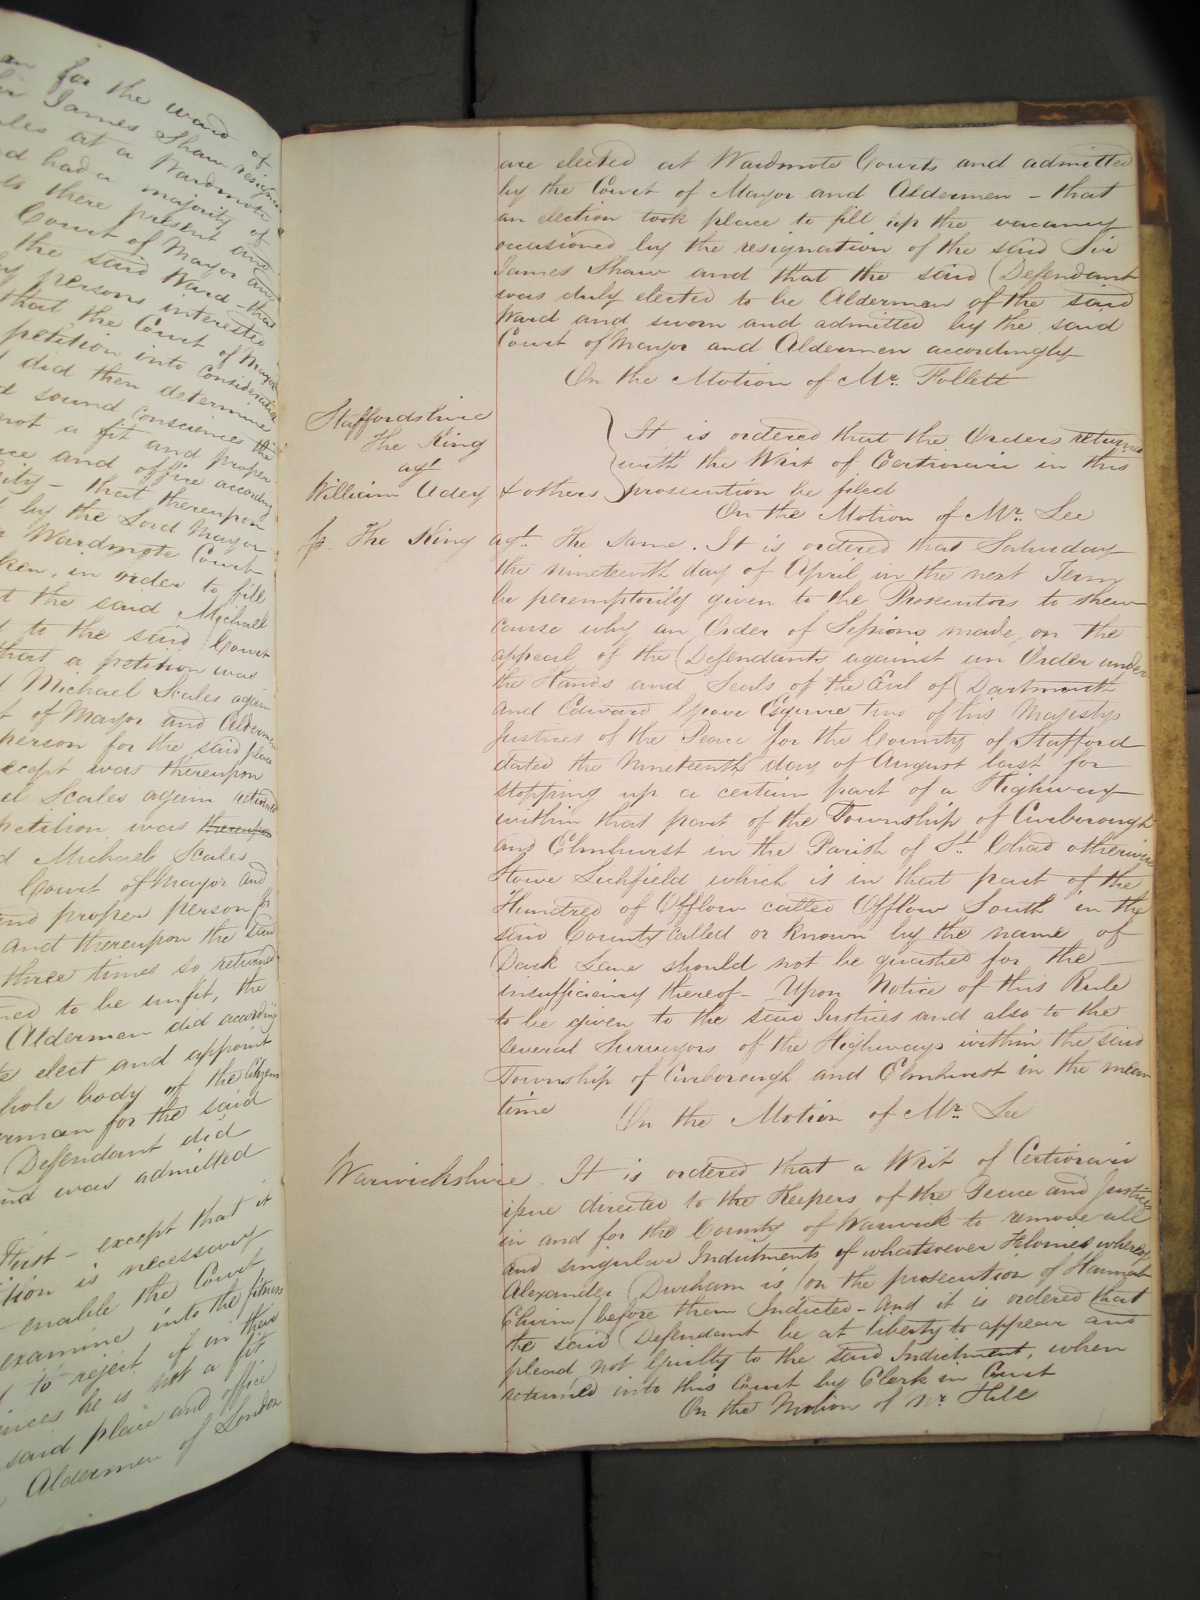 an for the ward of
Sir James Shaw resign
ales at a Wardmote
nd had a majority of
ds there present and
Court of Mayor and
the said Ward - that
by persons interested
that the Court of Mayor
petition into consideration
did then determine
d sound consciences the
not a fit and proper
ce and office according
ity - that thereupon
by the Lord Mayor
a Wardmote Court
hen, in order to fill
t the said Michael
d to the said Court
that a petition was
d Michael Scales again
t of Mayor and Aldermen
person for the said place
ecept was thereupon
el Scales again returned
petition was thereupon
d Michael Scales
Court of Mayor and
and proper person for
and thereupon the said
three times so returned
ned to be unfit, the
Aldermen did according
elect and appoint
hole body of the Citizens
erman for the said
Defendant did
nd was admitted
First - except that it
tion is necessary
enable the Court
examine into the fitness
to reject if in their
iences he is not a fit
said place and office
Aldermen of London
are elected at Wardmote Courts and admitted
by the Court of Mayor and Aldermen - that
an election took place to fill up the vacancy
occasioned by the resignation of the said Sir
James Shaw and that the said Defendant
was duly elected to be Alderman of the said
Ward and sworn and admitted by the said
Court of Mayor and Aldermen accordingly
On the Motion of Mr. Follett
Staffordshire
The King
agt
William Adey & others
It is ordered that the Orders returned
with the Writ of Certiorari in this
prosecution be filed
On the Motion of Mr. Lee
The King agt. The Same. It is ordered that Saturday
the nineteenth day of April in the next Term
be peremptorily given to the Prosecutors to shew
cause why an Order of Sessions made, on the
appeal of the Defendants against an Order under
the Hands and Seals of the Earl of Dartmouth
and Edward Grove Esquire two of his Majestys
Justices of the Peace for the County of Stafford
dated the nineteenth day of August last for
stopping up a certain part of a Highway
within that part of the Township of Curborough
and Elmhurst in the Parish of St. Chad otherwise
Stowe Lichfield which is in that part of the
Hundred of Offlow called Offlow South in the
said County called or known by the name of
Dark Lane should not be quashed for the
insufficiency thereof - Upon Notice of this Rule
to be given to the said Justices and also to the
several Surveyors of the Highways within the said
Township of Curborough and Elmhurst in the mean
time On the Motion of Mr. Lee
Warwickshire. It is ordered that a Writ of Certiorari
issue directed to the Keepers of the Peace and Justices
in and for the County of Warwick to remove all
and singular Indictments of whatsoever Felonies whereof
Alexander Durham is (on the prosecution of Hannah
before them Indicted - And it is ordered that
the said Defendant be at liberty to appear and
plead not Guilty to the said Indictment, when
returned into this Court by Clerk in Court
On the Motion of Mr. Hill